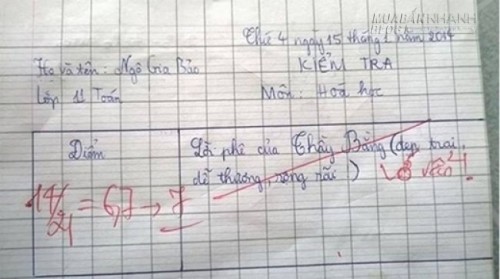 MUABANNHANH
Thứ 4 ngày 15 tháng 1 năm 2014
Họ và tên: Ngô Gia Bảo
KIỂM TRA
Lớp 11 Toán
Môn: Hoá học
Điểm
Lời phê của Thầy Bằng (đẹp trai,
dễ thương, rộng rãi !)
14/21 = 6,7 → 7